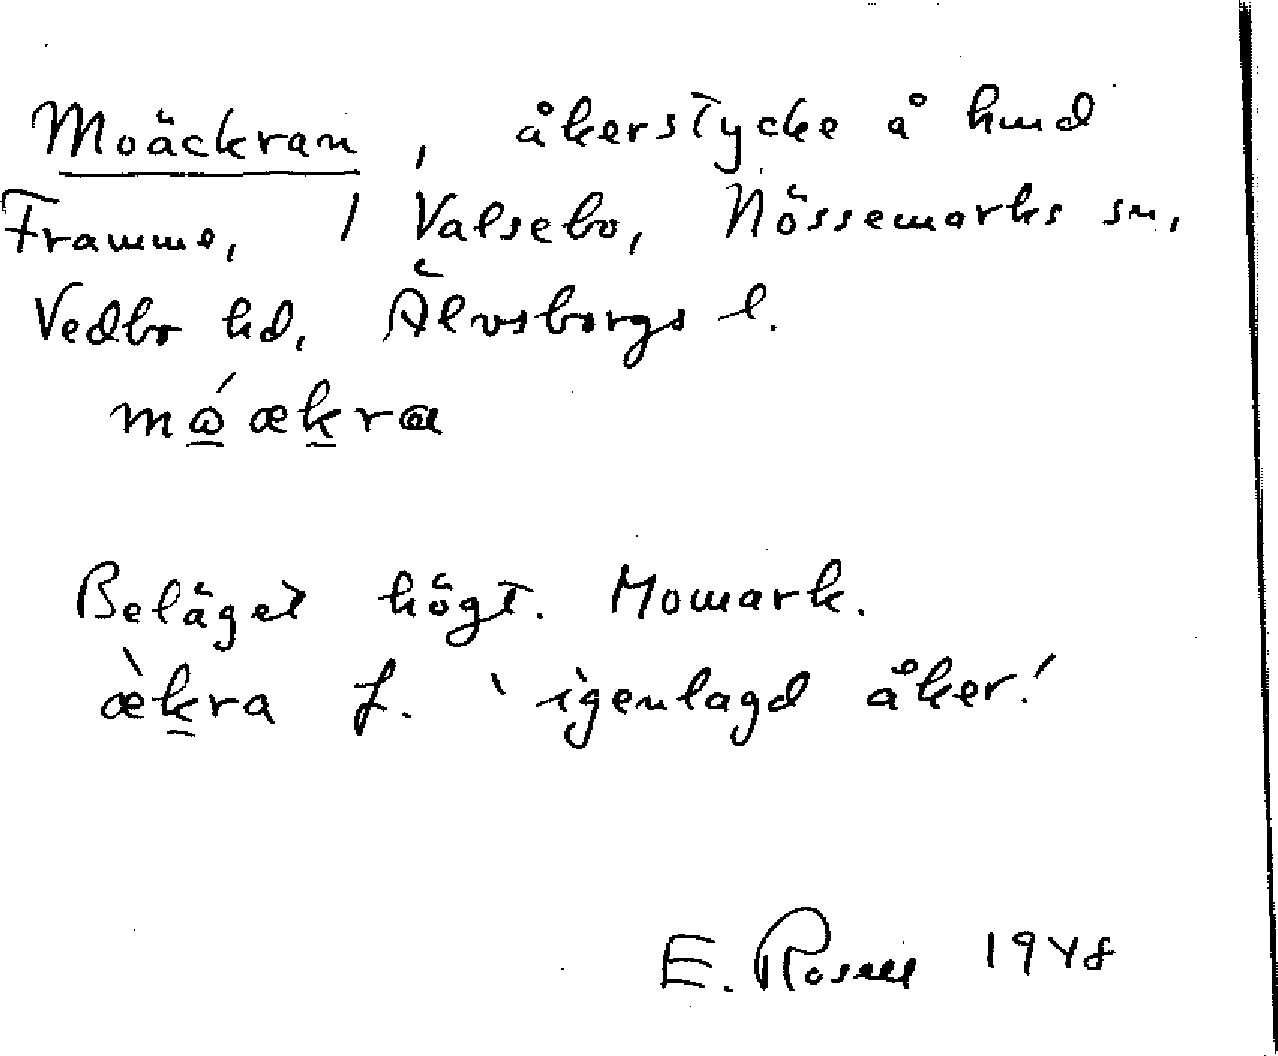 Moäckran, åkerstycke å hmd
Framme, 1 Valsebo, Nössemarks sn,
Vedbo hd, Älvsborgs l.
mɷ́ækra
Beläget högt. Momark.
æ̀kra f. 'igenlagd åker.'
E. Rosell 1948